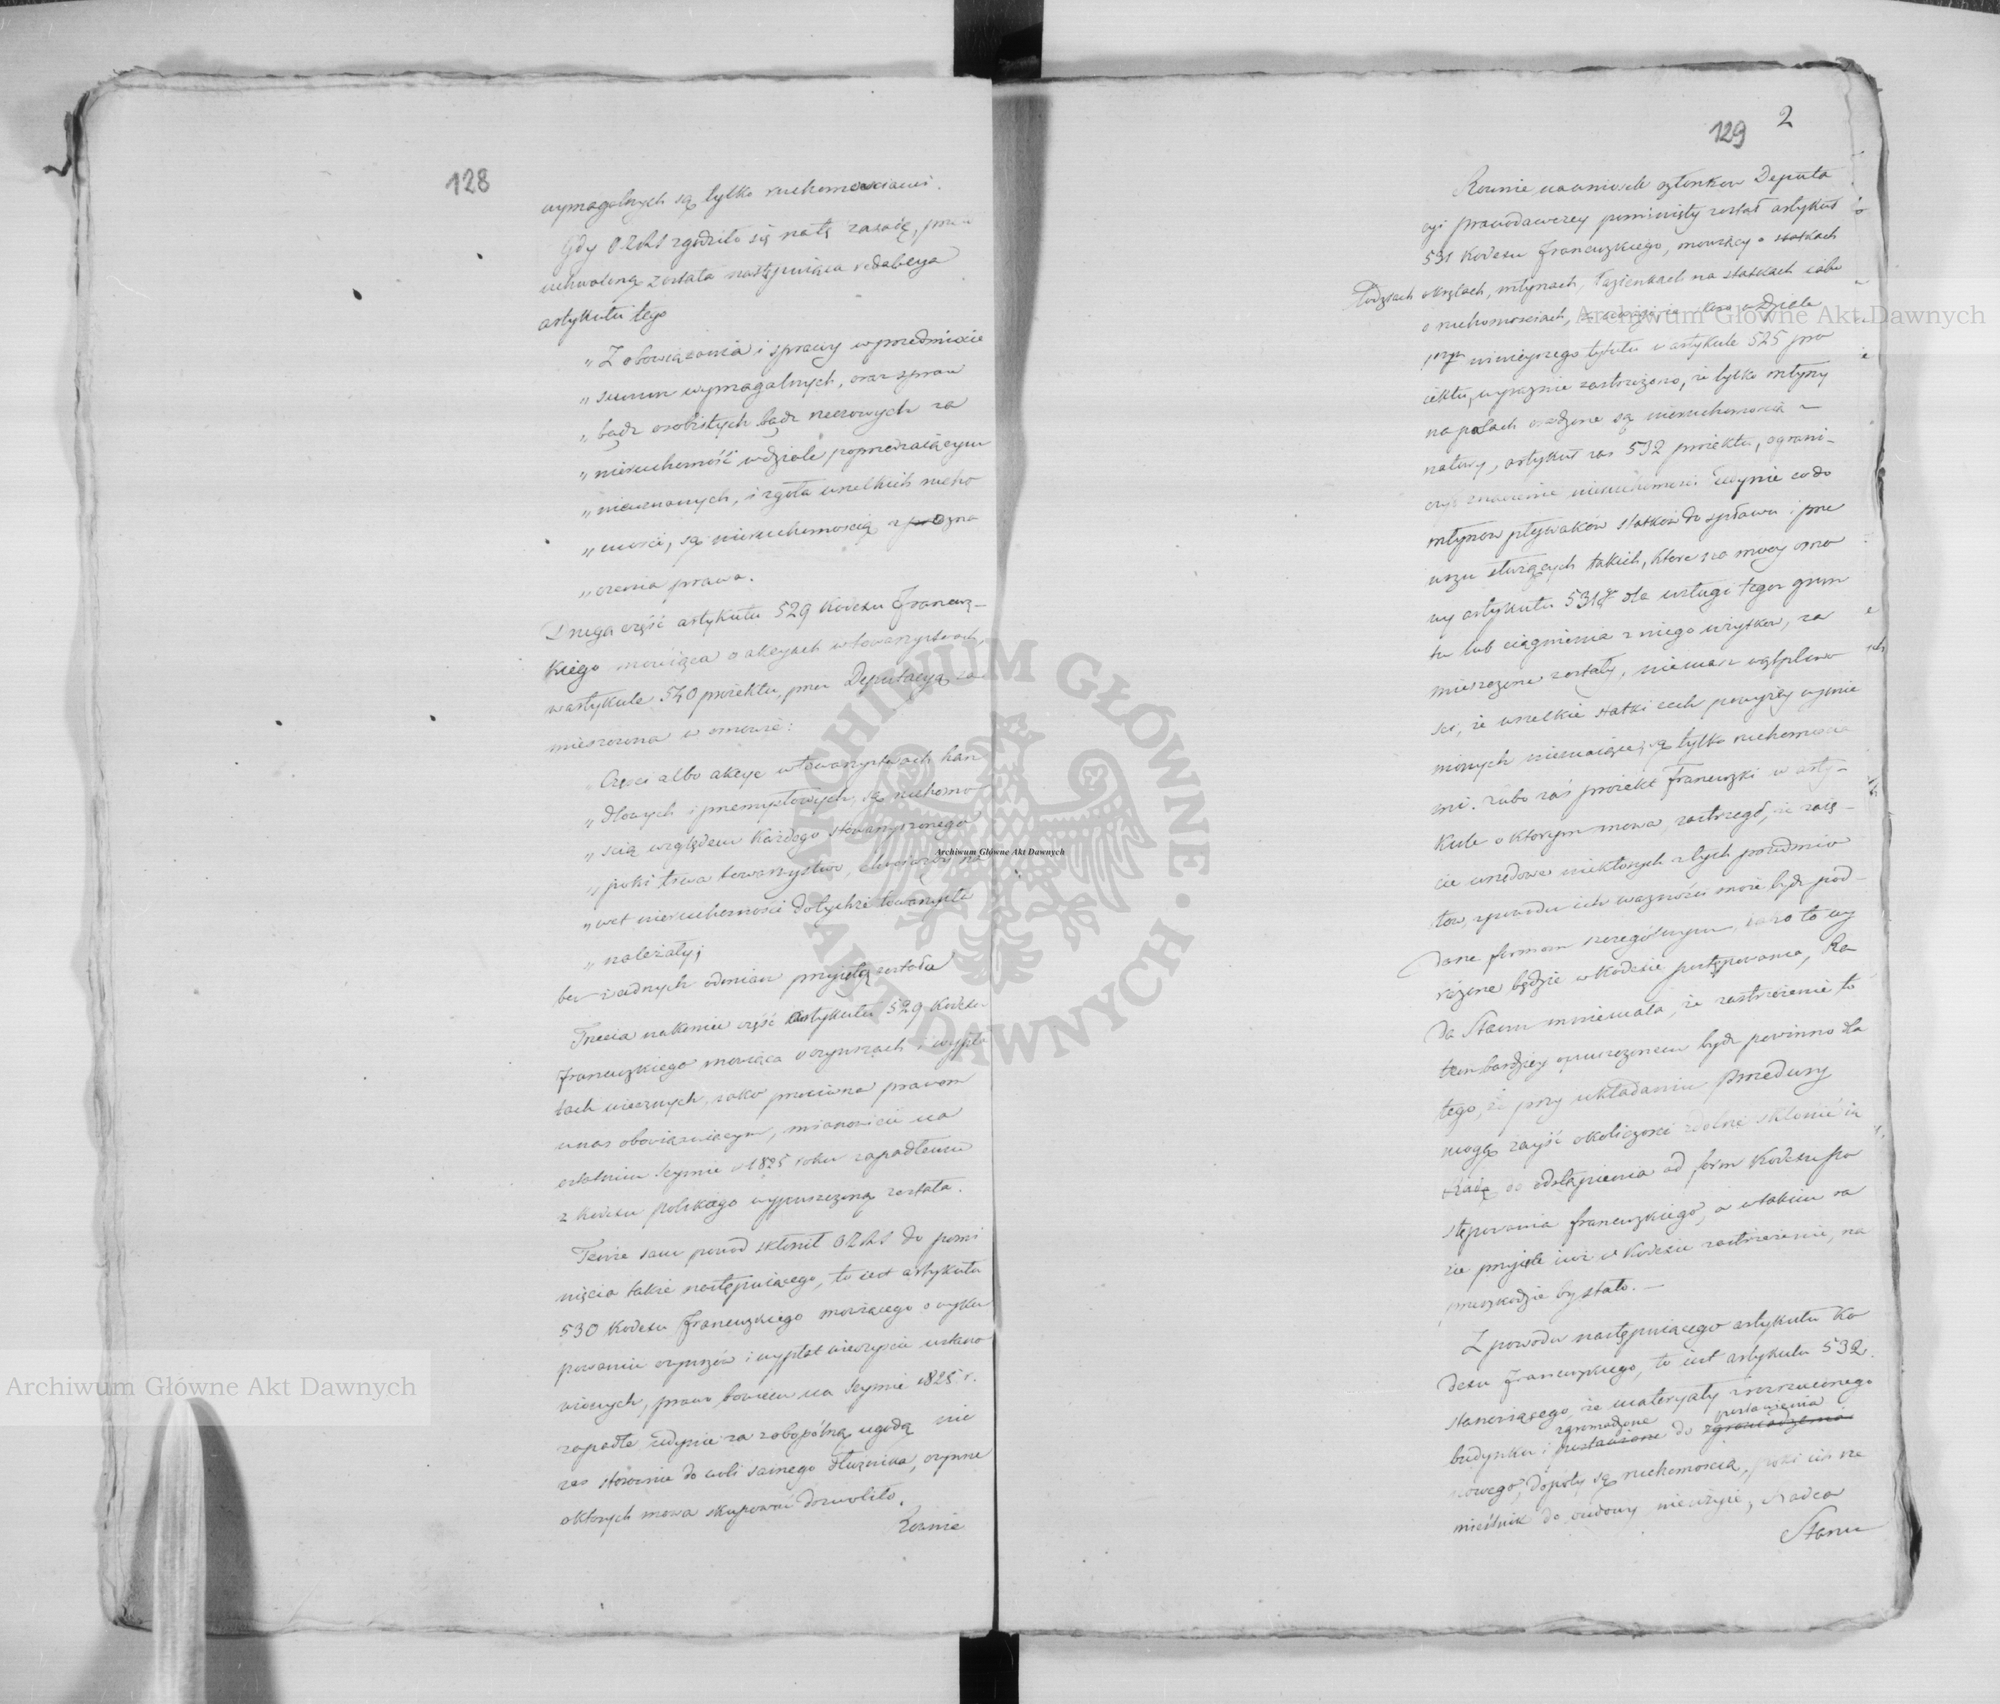 128
wymagalnych są tylko ruchomościami.
Gdy O.R.A.S zgodziło się na tę zasadę, prze
uchwaloną została następuiąca redakcya
artykułu tego
„Zobowiązania i sprawy w przedmiocie
„summ wymagalnych, oraz spraw
„bądz osobistych bądz rzeczowych za
„nieruchomość w dziale poprzedzaiącym
„nieuznanych, i zgoła wszelkich rucho
„mości, są nieruchomością z pr ozna
„czenia prawa.
Druga część artykułu 529 Kodexu Francuz-
kiego mowiąca o akcyach w towarzystwach
w artykule 540 proiektu, przez Deputacyą za
mieszczona w osnowie:
„Części albo akcye w towarzystwach han
„dlowych i przemysłowych, są ruchomo
„scią względem każdego stowarzyszonego
„poki trwa towarzystwo, chociażby na
„wet nieruchomości do tychże towarzystw
„należały;
bez żadnych odmian przyiętą została
Trzecia nakoniec część artykułu 529 Kodexu
Francuzkiego mowiąca o czynszach i wypła
tach wiecznych, iako przeciwna prawom
u nas obowiązuiącym, mianowicie na
ostatnim Seymie w 1825 roku zapadłemu
z Kodexu polskiego wypuszczoną została.
Tenże sam powod skłonił O.R.A.S do pomi
nięcia także następuiącego, to iest artykułu
530 Kodexu Francuzkiego mowiącego o wyku
powaniu czynszów i wypłat wieczyście ustano
wionych, prawo bowiem na Seymie 1825 r.
zapadłe iedynie za zobopólną ugodą nie
zas stosownie do woli samego dłużnika, czynsze
o ktorych mowa skupować dozwoliło.
Rownie
129 2
Rownie na wniosek członkow Deputa
cyi prawodawczey pominięty został artykuł
531 Kodexu Francuzkiego, mowiący o statkach
łodziach okrętach, młynach, łazienkach na statkach iako
o ruchomosciach,
przy ninieyszego tytułu w artykule 525 pro
iektu, wyraznie zastrzeżono, że tylko młyny
na palach osadzone są nieruchomością z
natury, artykuł zas 532 proiektu, ograni-
czył znaczenie nieruchomosci iedynie co do
młynow pływaków statków do spławu i prze
wozu służących takich, ktore na mocy osno
wy artykułu 531go dla usługi tegoż grun
tu lub ciągnienia z niego użytkow, za
mieszczone zostały, niemasz wątpliwo
ści, że wszelkie statki cech powyżey wymie
nionych niemaiące, są tylko ruchomościa
mi. Lubo zaś proiekt Francuzki w arty-
kule o ktorym mowa, zastrzegł, że zaię-
cie urzędowe niektorych z tych przedmio
tow, z powodu ich wazności może bydz pod-
dane formom szczegolnym, iako to wy
rażone będzie w Kodexie postępowania, Ra
da Stanu mniemała, że zastrzeżenie to
tem bardziey opuszczonem bydz powinno dla
tego, że przy układaniu Procedury
mogą zayść okoliczności zdolne skłonić ią
Radę do odstąpienia od form Kodexu Po
stępowania Francuzkiego, a w takim ra
zie przyięte iuż w Kodexie zastrzeżenie, na
przeszkodzie by stało. —
Z powodu następuiącego artykułu Ko
dexu Francuzkiego, to iest artykułu 532.
stanowiącego, że materyały z rozrzuconego
zgromadzone postawienia
budynku i postawione do zgromadzenia
nowego, dopoty są ruchomością, poki ich rze
mieślnik do budowy nieużyie, Radca
Stanu
Archiwum Główne Akt Dawnych
Archiwum Główne Akt Dawnych
Archiwum Główne Akt Dawnych
ARCHIWUM GŁÓWNE · AKT DAWNYCH ·